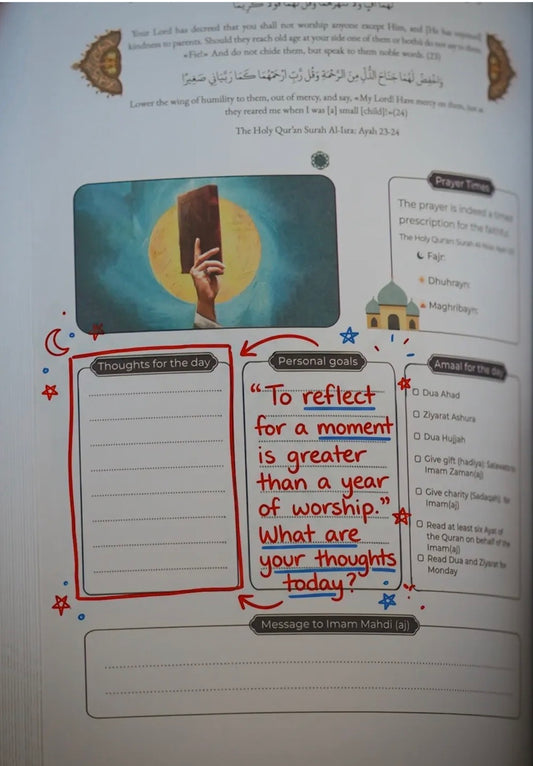 Your Lord has decreed that you shall not worship anyone except Him, and [He has enjoined]
kindness to parents. Should they reach old age at your side one of them or both do not say to them,
«Fie!» And do not chide them, but speak to them noble words. (23)
وَاخْفِضْ لَهُمَا جَنَاحَ الذُّلِّ مِنَ الرَّحْمَةِ وَقُل رَّبِّ ارْحَمْهُمَا كَمَا رَبَّيَانِي صَغِيرًا
Lower the wing of humility to them, out of mercy, and say, «My Lord! Have mercy on them, just as
they reared me when I was [a] small [child]!»(24)
The Holy Qur'an Surah Al-Isra: Ayah 23-24
Prayer Times
The prayer is indeed a timed
prescription for the faithful.
The Holy Quran: Surah
Fajr:
Dhuhrayn:
Maghribayn:
Thoughts for the day
Personal goals
"To reflect
for a moment
is greater
than a year
of worship."
What are
your thoughts
today?
Amaal for the day
Dua Ahad
Ziyarat Ashura
Dua Hujjah
Give gift (hadiya): Salawat to
Imam Zaman(aj)
Give charity (Sadaqah): for
Imam(aj)
Read at least six Ayat of
the Quran on behalf of the
Imam(aj)
Read Dua and Ziyarat for
Monday
Message to Imam Mahdi (aj)